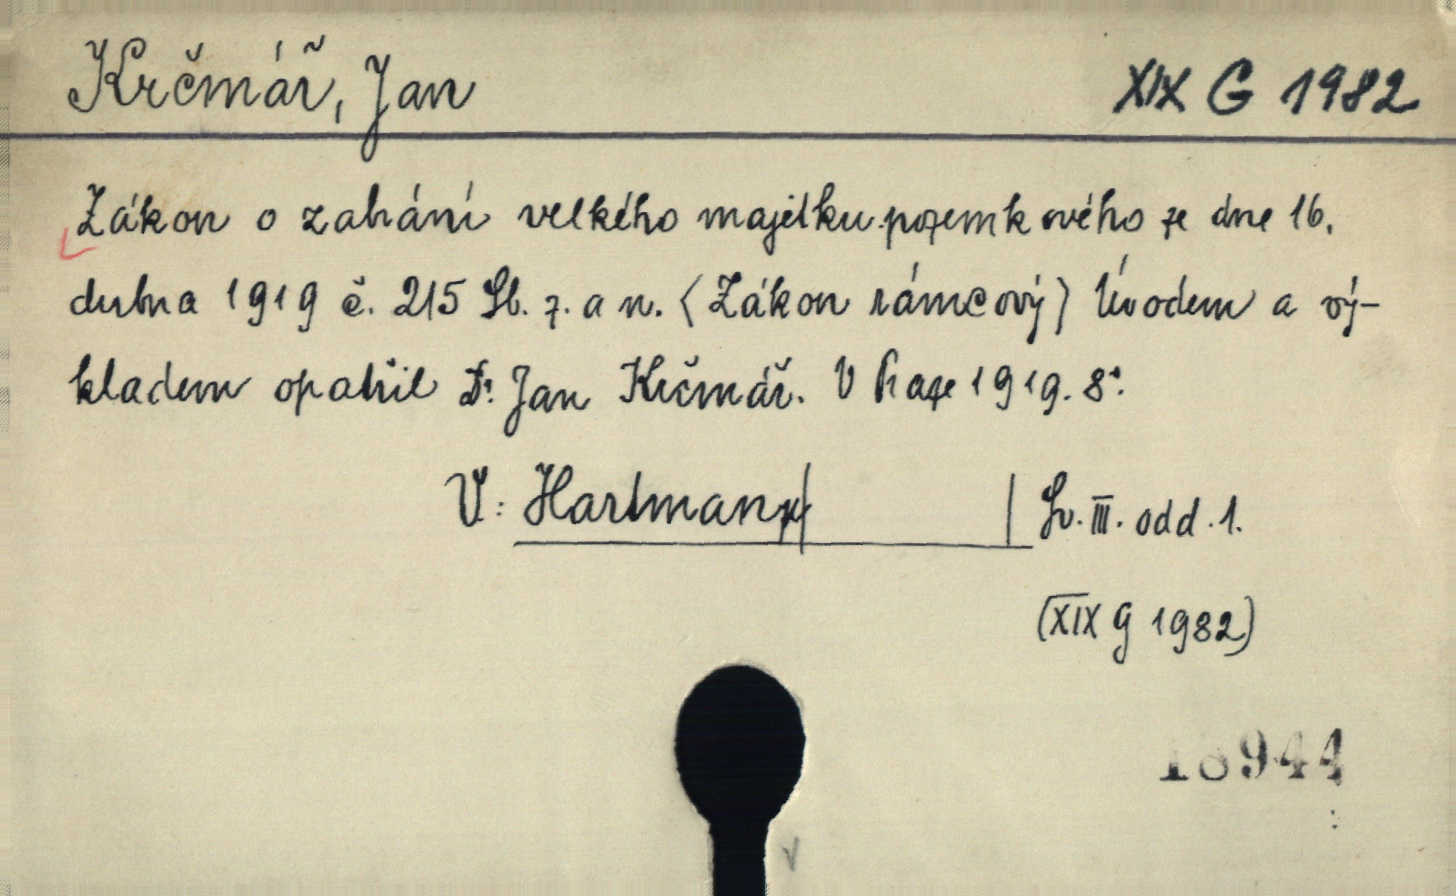 Krčmář, Jan XIX G 1982
Zákon o zabrání velkého majetku pozemkového ze dne 16.
dubna 1919 č. 215 Sb. z. a n. (Zákon rámcový) Úvodem a vý-
kladem opatřil Dr. Jan Krčmář. V Praze 1919. 8°.
V: Hartmann Sv. III. odd. 1.
(XIX G 1982)
18944